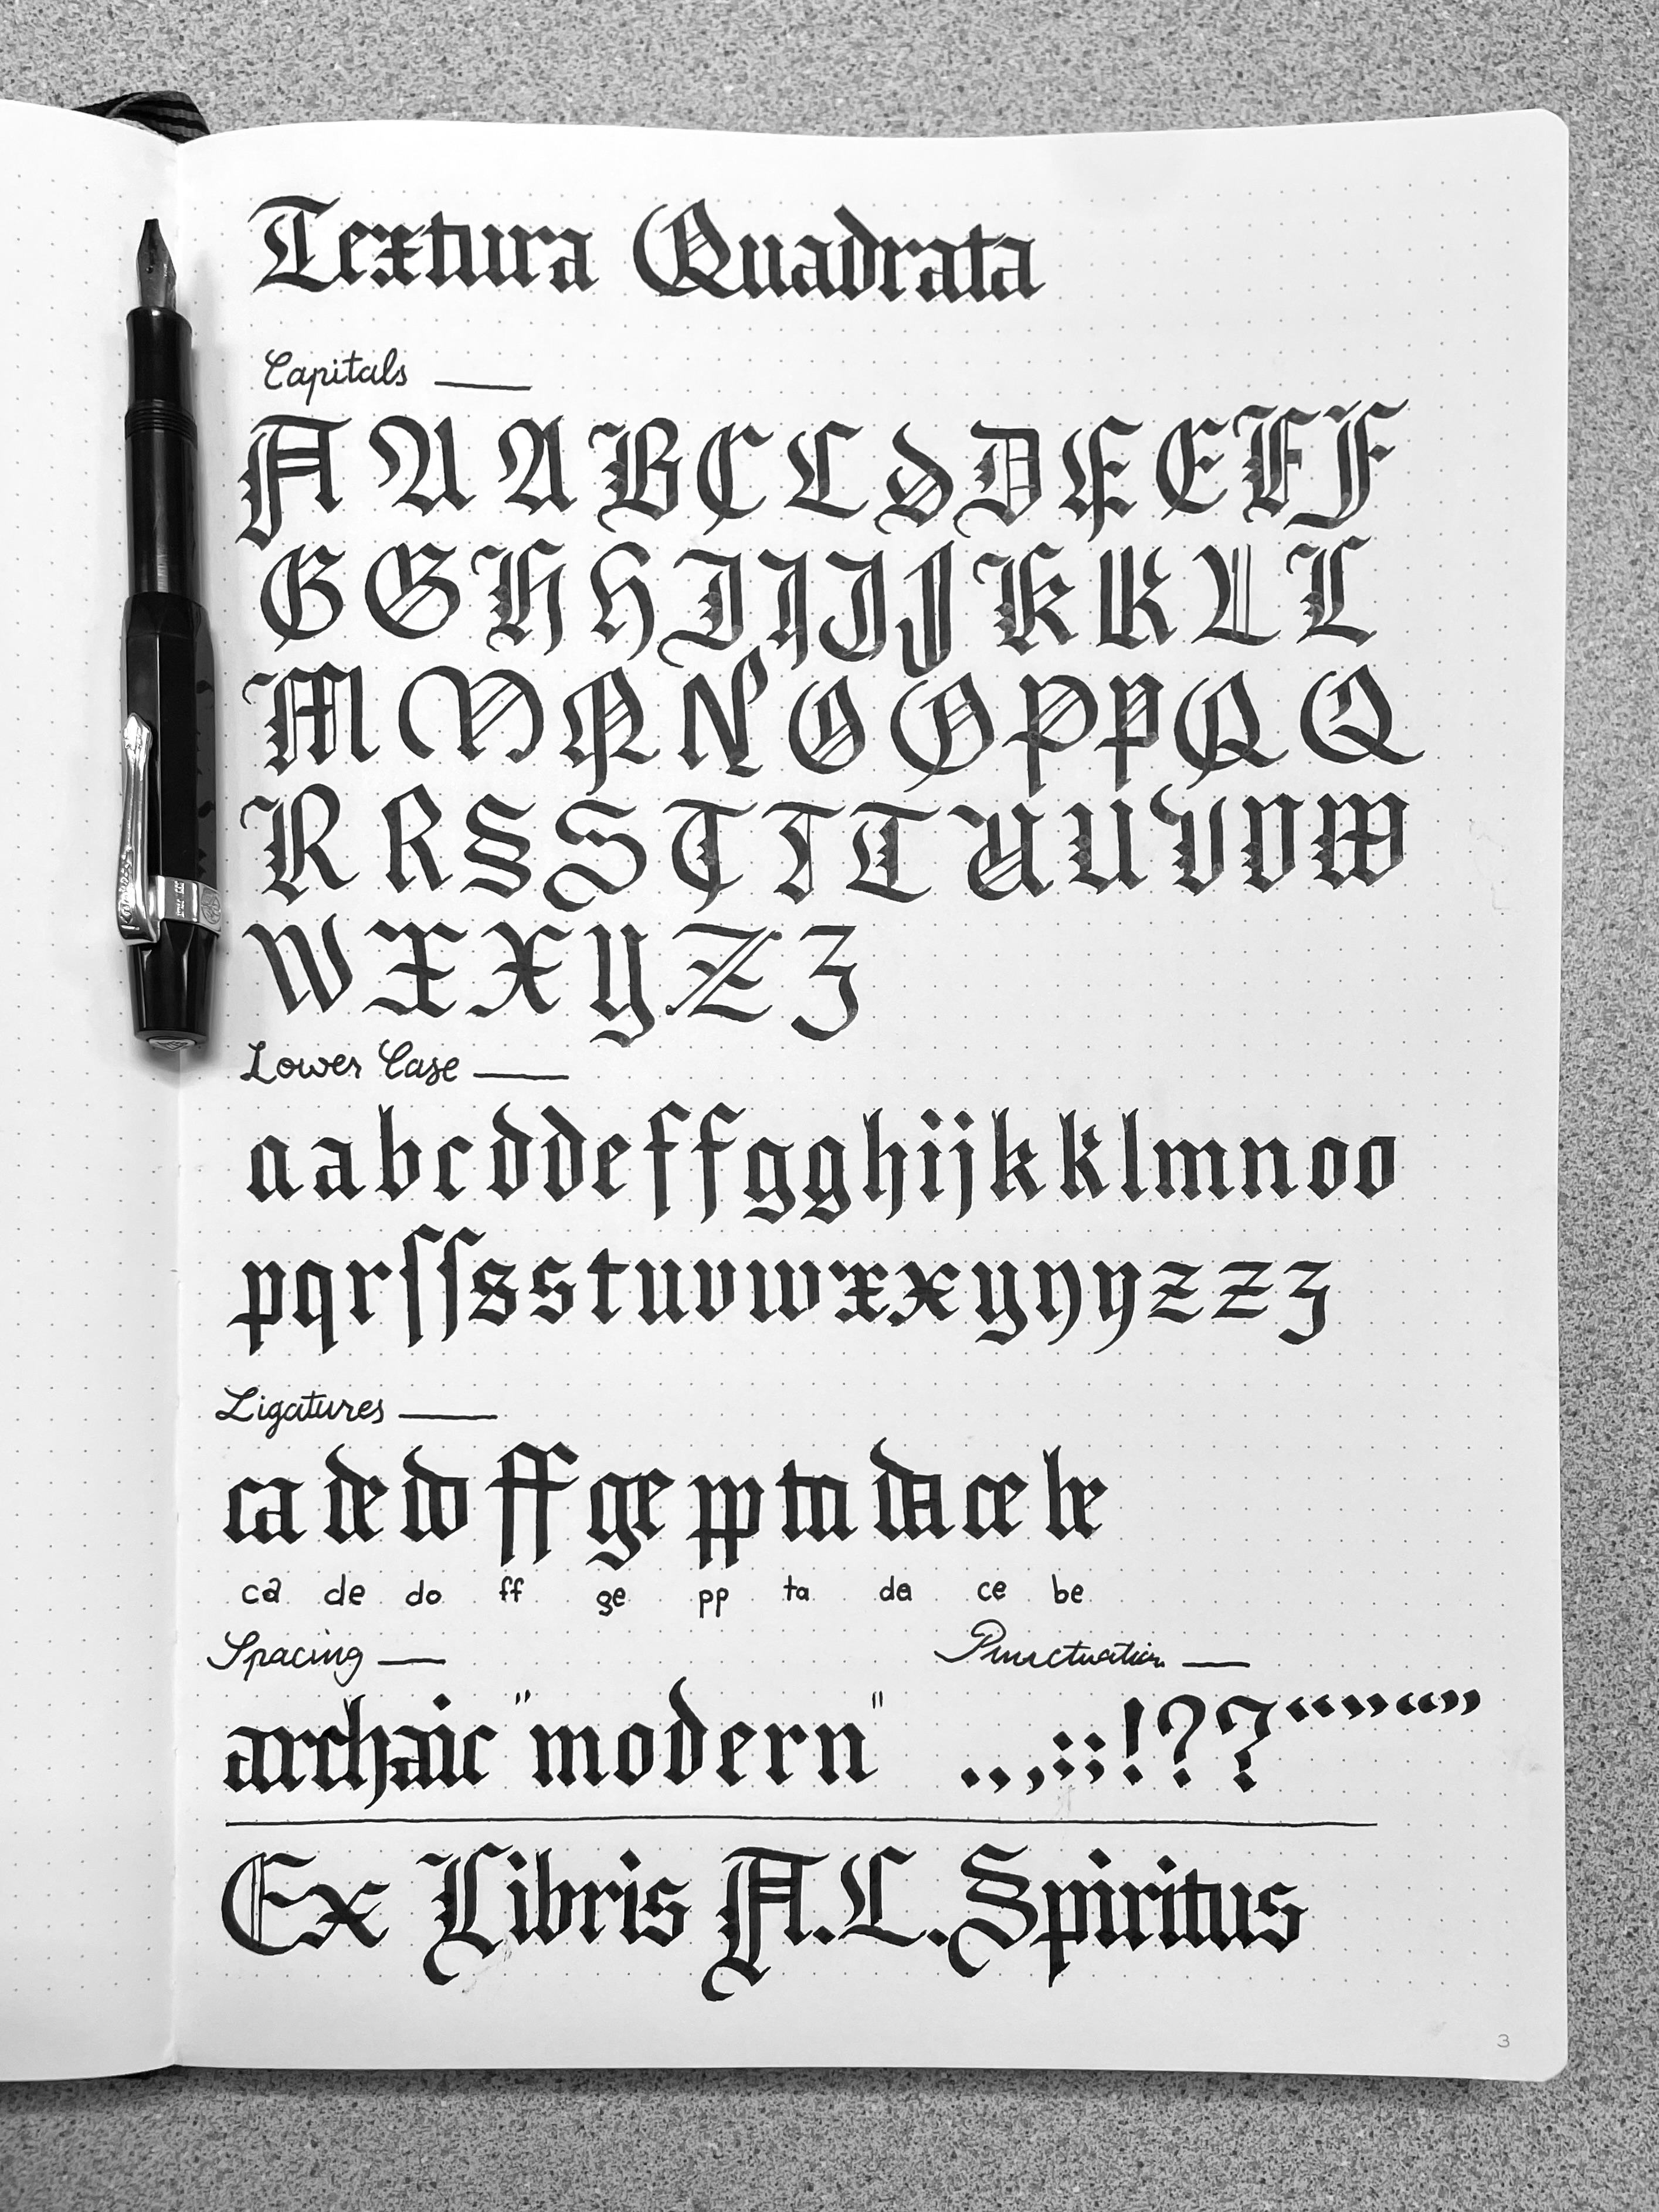 Textura Quadrata
Capitals —
A A A B C C D D E E F F
G G H H I I J J K K L L
M M N N O O P P Q Q
R R S S T T T U U V V W
W X X Y Z Z
Lower Case —
a a b c d d e f f g g h i j k k l m n o o
p q r ſ ſ s s t u v w x x y y y z z z
Ligatures —
ca de do ff ge pp ta da ce be
ca de do ff ge pp ta da ce be
Spacing — Punctuation —
archaic "modern" . . , : ; ! ? ? “ ” “ ”
Ex Libris A.L. Spiritus
3